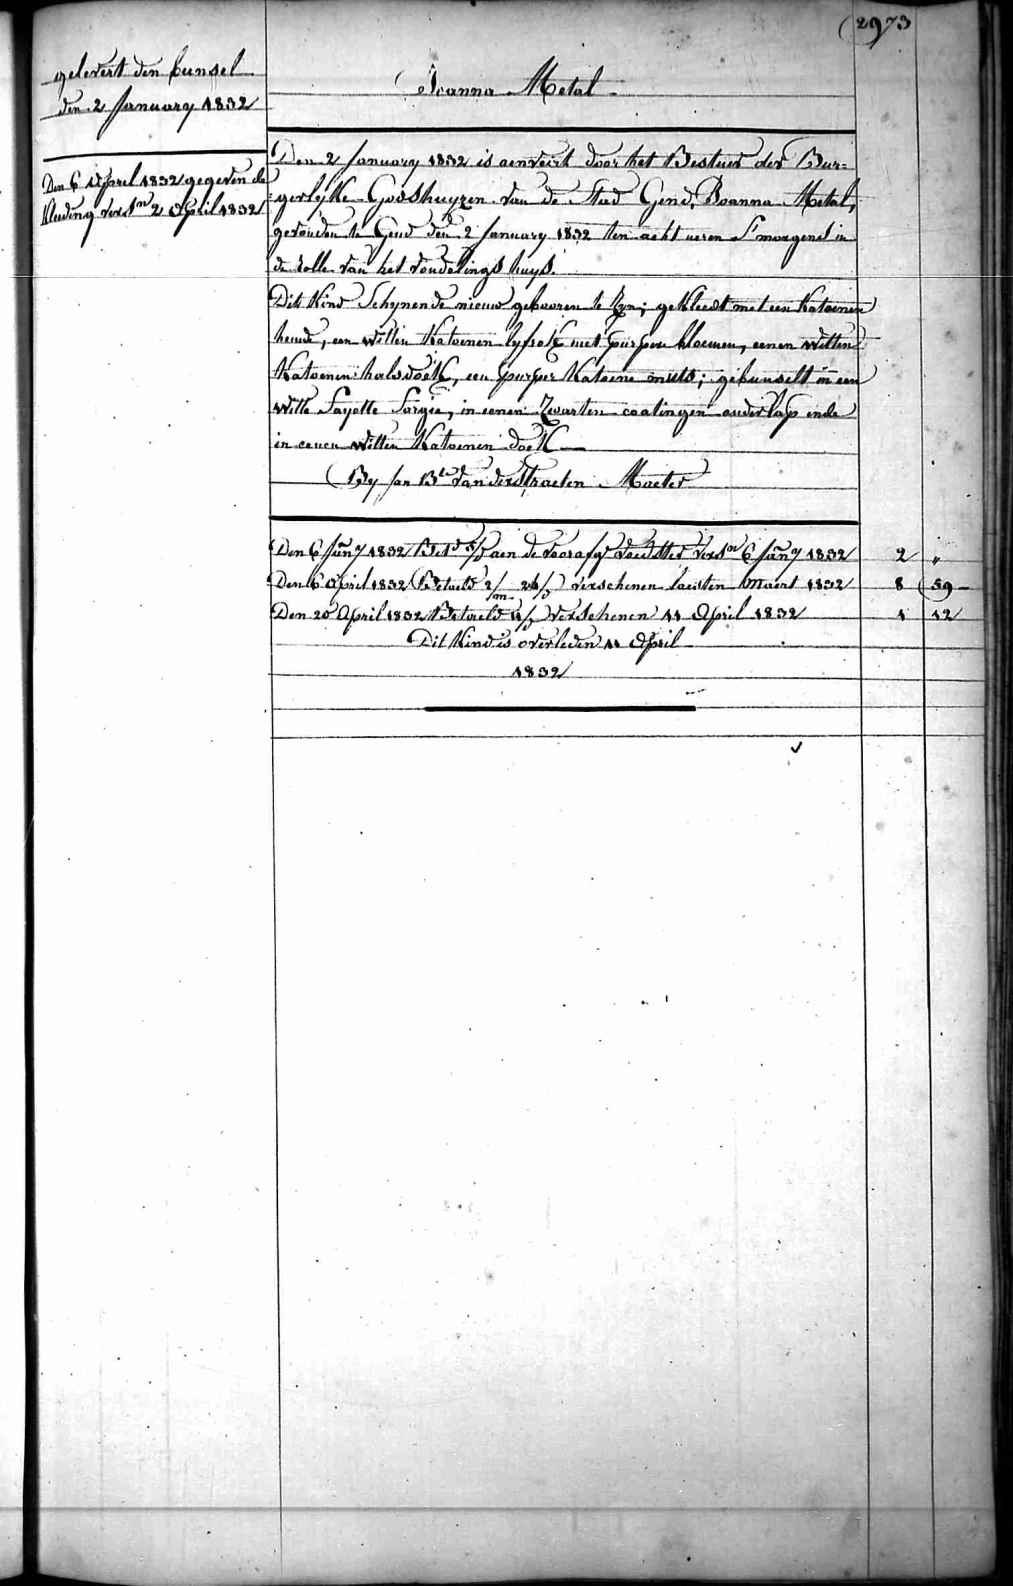 2973
gelevert den bunsel
den 2 January 1832
Den 6 April 1832 gegeven de
kleeding versn 2 April 1832
Joanna Metal
Den 2 January 1832 is aenveirt door het Bestuer der Bur=
gerlyke Godshuyzen van de Stad Gend, Joanna Metal,
gevonden te Gend den 2 January 1832 ten acht ueren S'morgens in
de rolle van het vondelings huys.
Dit Kind Schynende nieuw gebooren te Zyn; gekleedt met een Katoenen
hemde, een witten Katoenen lyfrok met purpere bloemen, eenen witten
Katoenen halsdoek, een purper Katoene muts; gebunselt in een
witte Sayette Sargie, in eenen Zwarten coatingen ouderlap ende
in eenen witten Katoenen doek
By Jan Bte Vanderstraeten Maeter
Den 6 Jany 1832 Bet aen de voorafg voedster versn 6 Jany 1832 2 "
Den 6 April 1832 Betaeld 2/m 26/d verschenen laesten Maert 1832 8 59
Den 20 April 1832 Betaeld 11/d verschenen 11 April 1832 1 12
Dit Kind is overleden 11 April
1832